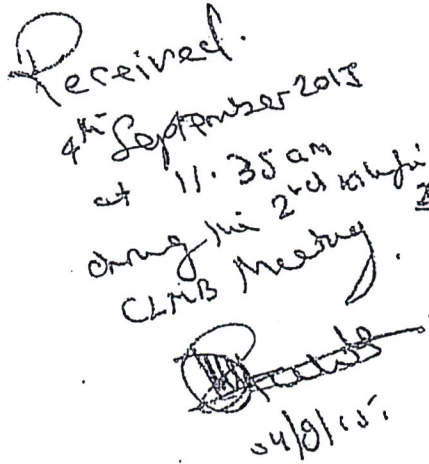 Received.
4th September 2015
at 11.35 am
during the 2nd
CLMB Meeting.
04/9/15.